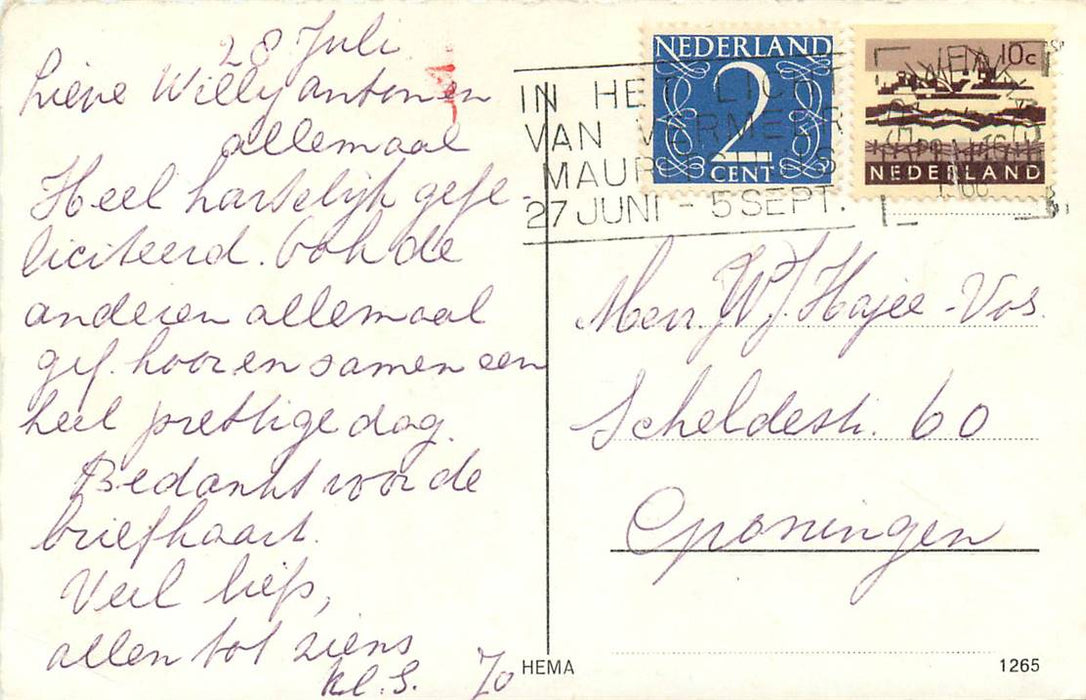 28 Juli
Lieve Willy anton en
allemaal
Heel hartelijk gefe-
liciteerd. Ook de
anderen allemaal
gef. hoor en samen een
heel prettige dag.
Bedankt voor de
briefkaart.
Veel liefs,
allen tot ziens
Jo
NEDERLAND
2
CENT
10c
NEDERLAND
IN HET LICHT
VAN VERMEER
MAURITSHUIS
27 JUNI - 5 SEPT.
Mevr. W.J. Hajee-Vos.
Scheldestr. 60
Groningen
HEMA
1265